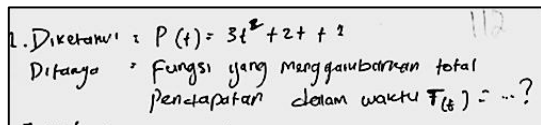 1. Diketahui : P(t) = 3t² + 2t + 1
Ditanya : Fungsi yang menggambarkan total
pendapatan dalam waktu F(t) = ...?